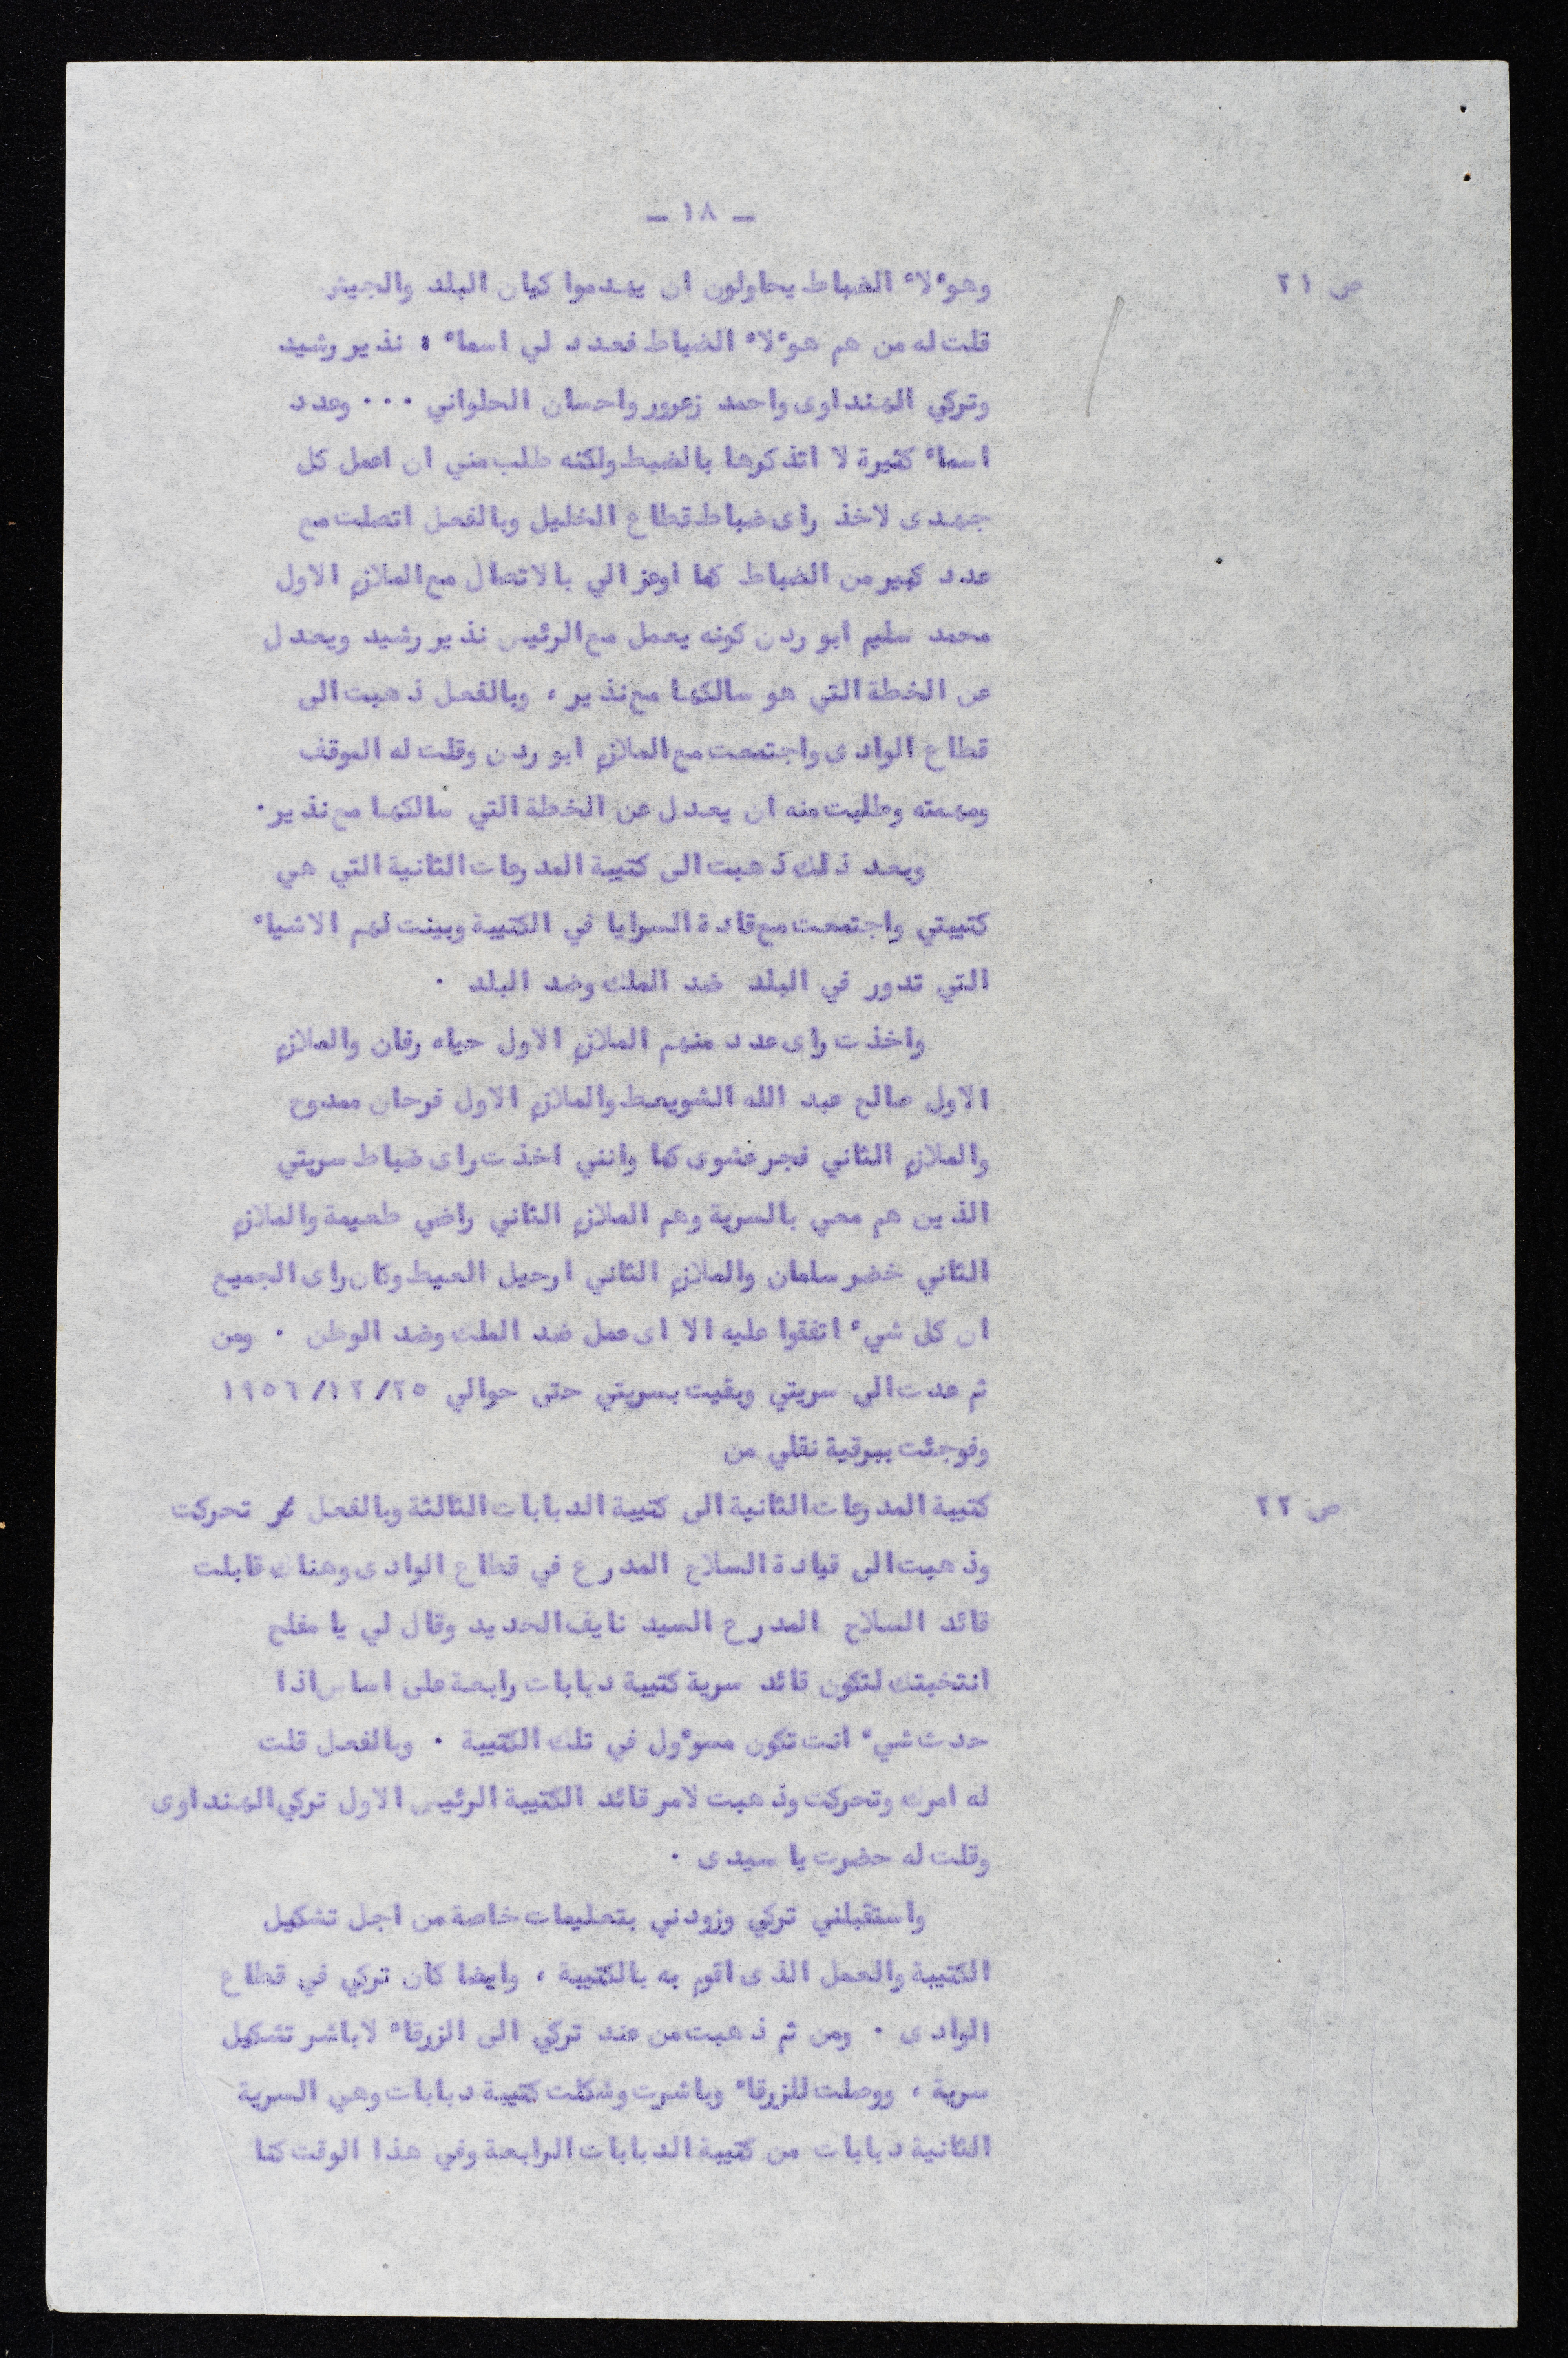 - ١٨ -
ص ٢١
وهوءلاء الضباط يحاولون ان يهدموا كيان البلد والجيش
قلت له من هم هوءلاء الضباط فعدد لي اسماء : نذير رشيد
وتركي الهنداوى واحمد زعرور واحسان الحلواني ... وعدد
اسماء كثيرة لا اتذكرها بالضبط ولكنه طلب مني ان اعمل كل
جهدى لاخذ راى ضباط قطاع الخليل وبالفعل اتصلت مع
عدد كبير من الضباط كما اوعز الي بالاتصال مع الملازم الاول
محمد سليم ابو ردن كونه يعمل مع الرئيس نذير رشيد ويعدل
عن الخطة التي هو سالكها مع نذير ، وبالفعل ذهبت الى
قطاع الوادى واجتمعت مع الملازم ابو ردن وقلت له الموقف
ومهمته وطلبت منه ان يعدل عن الخطة التي سالكها مع نذير .
وبعد ذلك ذهبت الى كتيبة المدرعات الثانية التي هي
كتيبتي واجتمعت مع قادة السرايا في الكتيبة وبينت لهم الاشياء
التي تدور في البلد ضد الملك وضد البلد .
واخذت راى عدد منهم الملازم الاول حياه رفان والملازم
الاول صالح عبد الله الشويعط والملازم الاول فرحان ممدوح
والملازم الثاني فجر عشوى كما وانني اخذت راى ضباط سريتي
الذين هم معي بالسرية وهم الملازم الثاني راضي طعيمة والملازم
الثاني خضر سلمان والملازم الثاني ارحيل العيط وكان راى الجميع
ان كل شيء اتفقوا عليه الا اى عمل ضد الملك وضد الوطن . ومن
ثم عدت الى سريتي وبقيت بسريتي حتى حوالي ٢٥/١٢/١٩٥٦
وفوجئت ببرقية نقلي من
ص ٢٢
كتيبة المدرعات الثانية الى كتيبة الدبابات الثالثة وبالفعل تحركت
وذهبت الى قيادة السلاح المدرع في قطاع الوادى وهناك قابلت
قائد السلاح المدرع السيد نايف الحديد وقال لي يا مفلح
انتخبتك لتكون قائد سرية كتيبة دبابات رابعة على اساس اذا
حدث شيء انت تكون مسوءول في تلك الكتيبة . وبالفعل قلت
له امرك وتحركت وذهبت لامر قائد الكتيبة الرئيس الاول تركي الهنداوى
وقلت له حضرت يا سيدى .
واستقبلني تركي وزودني بتعليمات خاصة من اجل تشكيل
الكتيبة والعمل الذى اقوم به بالكتيبة ، وايضا كان تركي في قطاع
الوادى . ومن ثم ذهبت من عند تركي الى الزرقاء لاباشر تشكيل
سرية ، ووصلت للزرقاء وباشرت وشكلت كتيبة دبابات وهي السرية
الثانية دبابات من كتيبة الدبابات الرابعة وفي هذا الوقت كنا